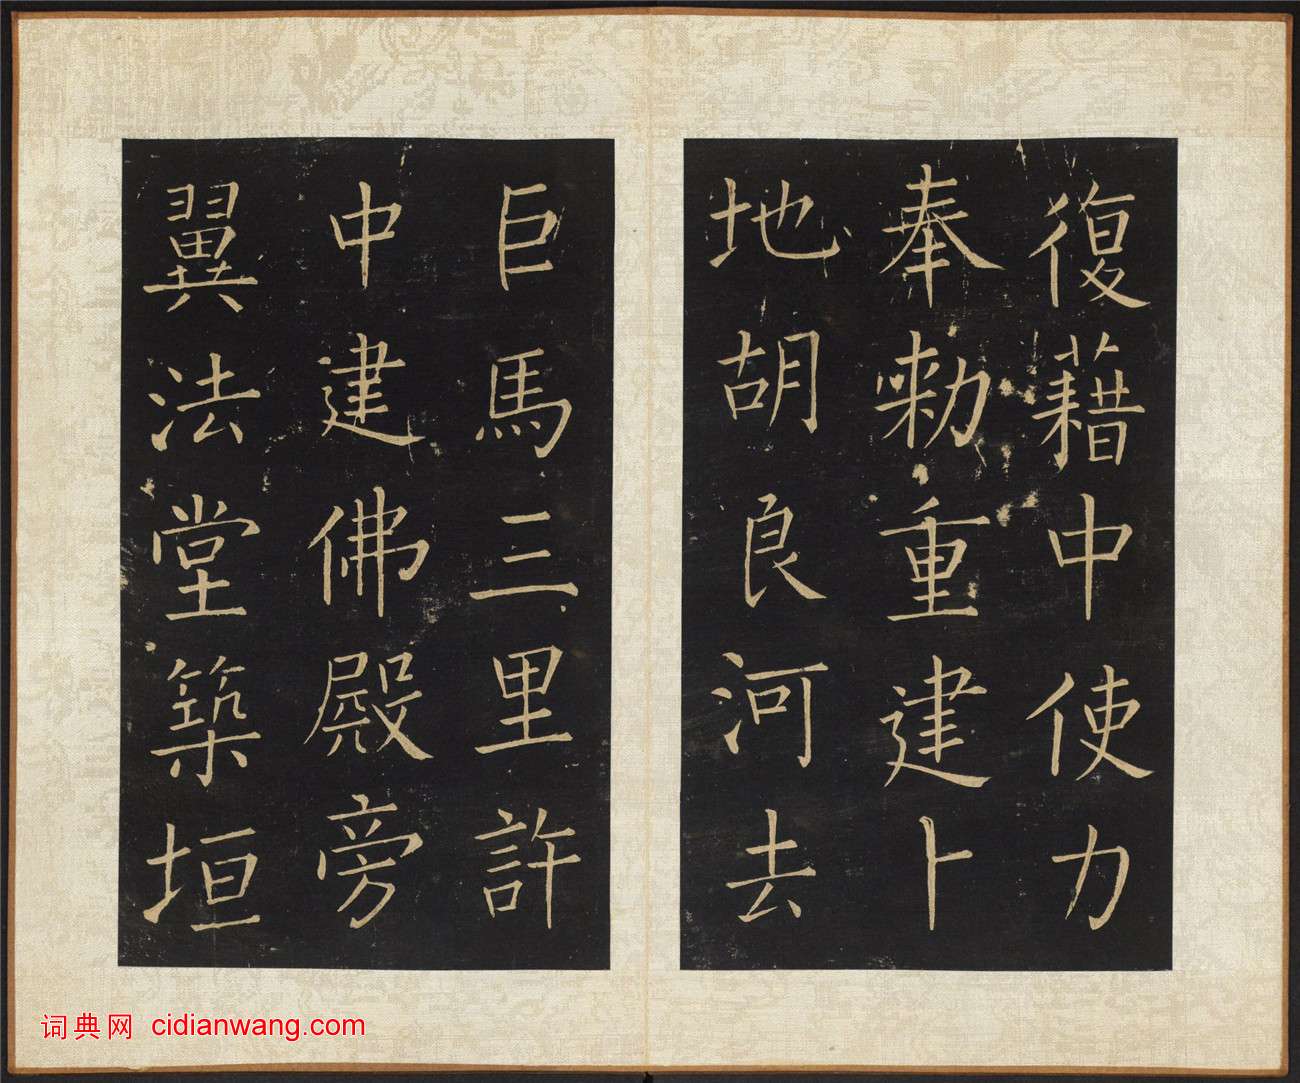 復藉中使力
奉勑重建卜
地胡良河去
巨馬三里許
中建佛殿旁
翼法堂築垣
词典网 cidianwang.com